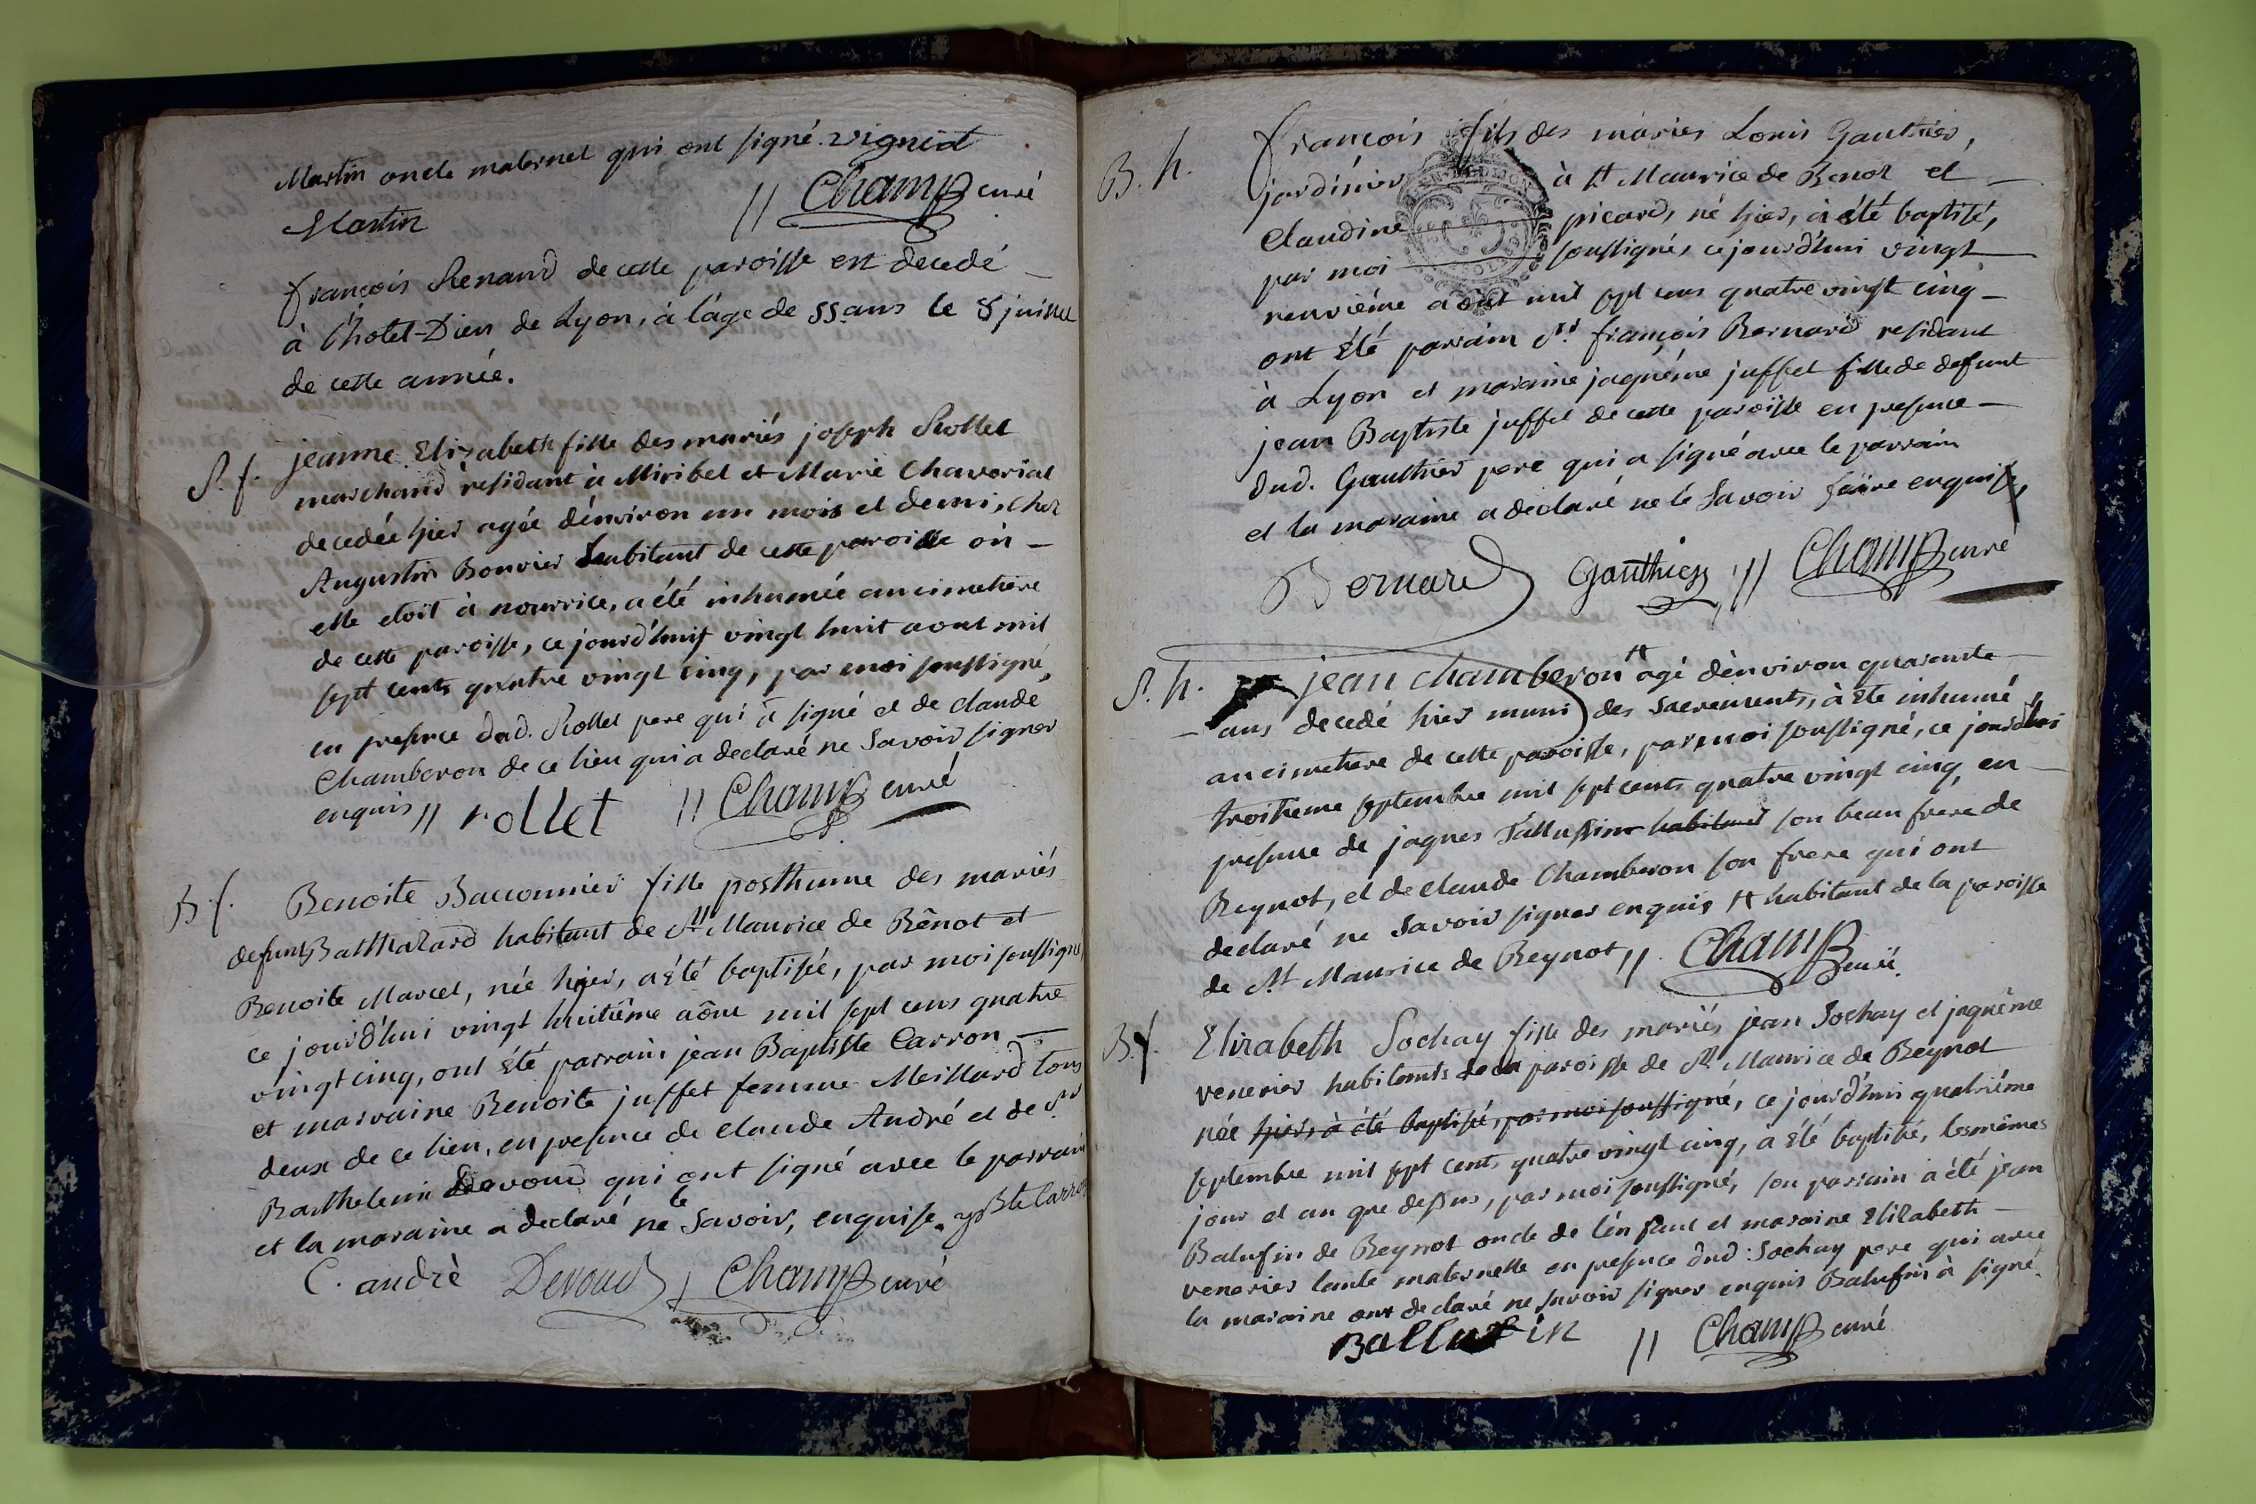 Martin oncle maternel qui ont signé. vignet
Martin // Champ curé
françois Renaud de cette paroisse est decedé
à l'hotel-Dieu de Lyon, à l'age de 55 ans le 8 juillet
de cette année.
S. f. jeanne Elizabeth fille des mariés joseph Rollet
marchand residant à Miribel et Marie Chavorial
decedée hier agée d'environ un mois et demi, chez
Augustin Bouvier habitant de cette paroisse où
elle etoit à nourrice, a été inhumée au cimetiere
de cette paroisse, ce jourd'huy vingt huit aout mil
sept cents quatre vingt cinq, par moi soussigné,
en presence dud. Rollet pere qui a signé et de claude
Chamberon de ce lieu qui a declaré ne savoir signer
enquis // rollet // Champ curé
B. f. Benoite Bacconnier fille posthume des mariés
defunt Balthazard habitant de St Maurice de Bênot et
Benoite Marcel, née hier, a été baptisée, par moi soussigné
ce jourd'hui vingt huitième aôut mil sept cens quatre
vingt cinq, ont été parrain jean Baptiste Carron
et marraine Benoite juffet femme Meillard tous
deux de ce lieu, en presence de claude André et de Sr
Barthelemi Devoud qui ont signé avec le parrain
et la maraine a declaré ne le savoir, enquise. jp Bte Carron
C. andrè Devoud // Champ curé
B. h. françois fils des mariés Louis Gauthier,
jardinier à St Maurice de Benot et
Claudine picard, né hier, à été baptisé,
par moi soussigné, ce jourd'hui vingt
neuvième aôut mil sept cens quatre vingt cinq
ont été parrain Sr. françois Bernard residant
à Lyon et maraine jaqueme juffet fille de defunt
jean Baptiste juffet de cette paroisse en presence
dud. Gauthier pere qui a signé avec le parrain
et la maraine a declaré ne le savoir faire enquise,
Bernard Gauthier // Champ curé
S. h. jean chamberon # agé d'environ quarante
ans decedé hier muni des sacrements, à été inhumé
au cimetiere de cette paroisse, par moi soussigné, ce jourd'hui
troisieme septembre mil sept cents quatre vingt cinq, en
presence de jaques habitant son beau frere de
Beynot, et de claude Chamberon son frere qui ont
declaré ne savoir signer enquis # habitant de la paroisse
de St Maurice de Beynot // Champ curé.
B. f. Elizabeth Sochay fille des mariés jean Sochay et jaquême
venerier habitants de la paroisse de St Maurice de Beynot
née hier, à été baptisée, par moi soussigné, ce jourd'hui quatrième
septembre mil sept cents quatre vingt cinq, a été baptisé, les mêmes
jour et an que dessus, par moi soussigné, son parrain a été jean
Balufin de Beynot oncle de l'enfant et maraine Elizabeth
venerier tante maternelle en presence dud. Sochay pere qui avec
la maraine ont declaré ne savoir signer enquis Balufin à signé.
Ballufin // Champ curé